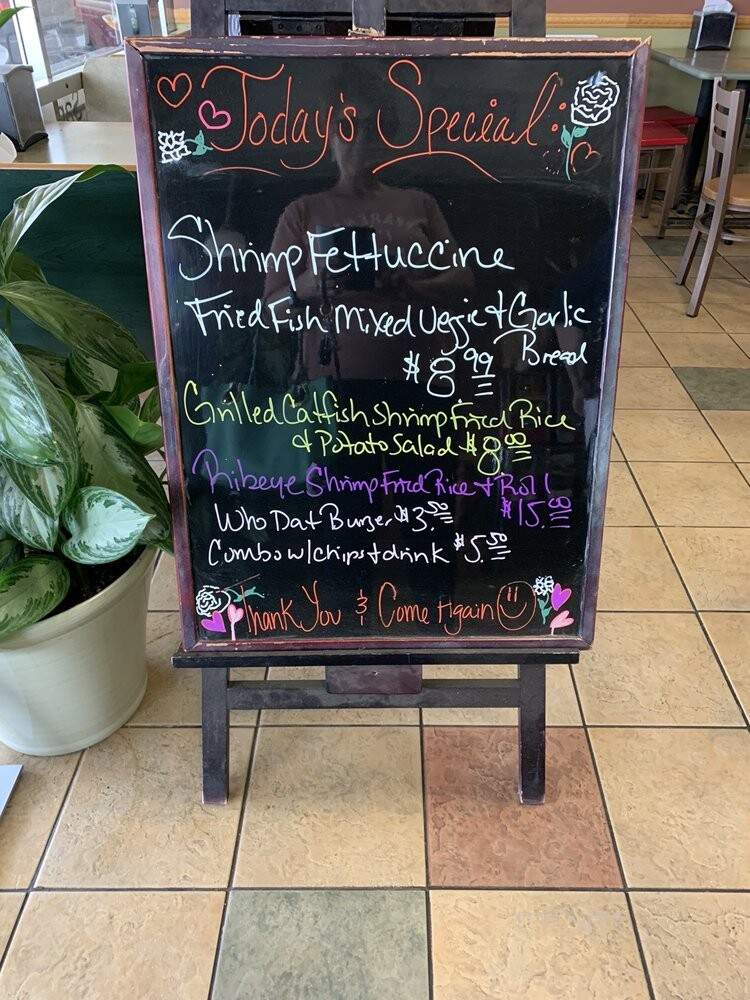 Today's Special:
Shrimp Fettuccine
Fried Fish Mixed Veggie & Garlic
Bread
$8.99
Grilled Catfish Shrimp Fried Rice
& Potato Salad $8.00
Ribeye Shrimp Fried Rice & Roll
$15.00
Who Dat Burger $3.50
Combo w/chips & drink $5.50
Thank You & Come Again